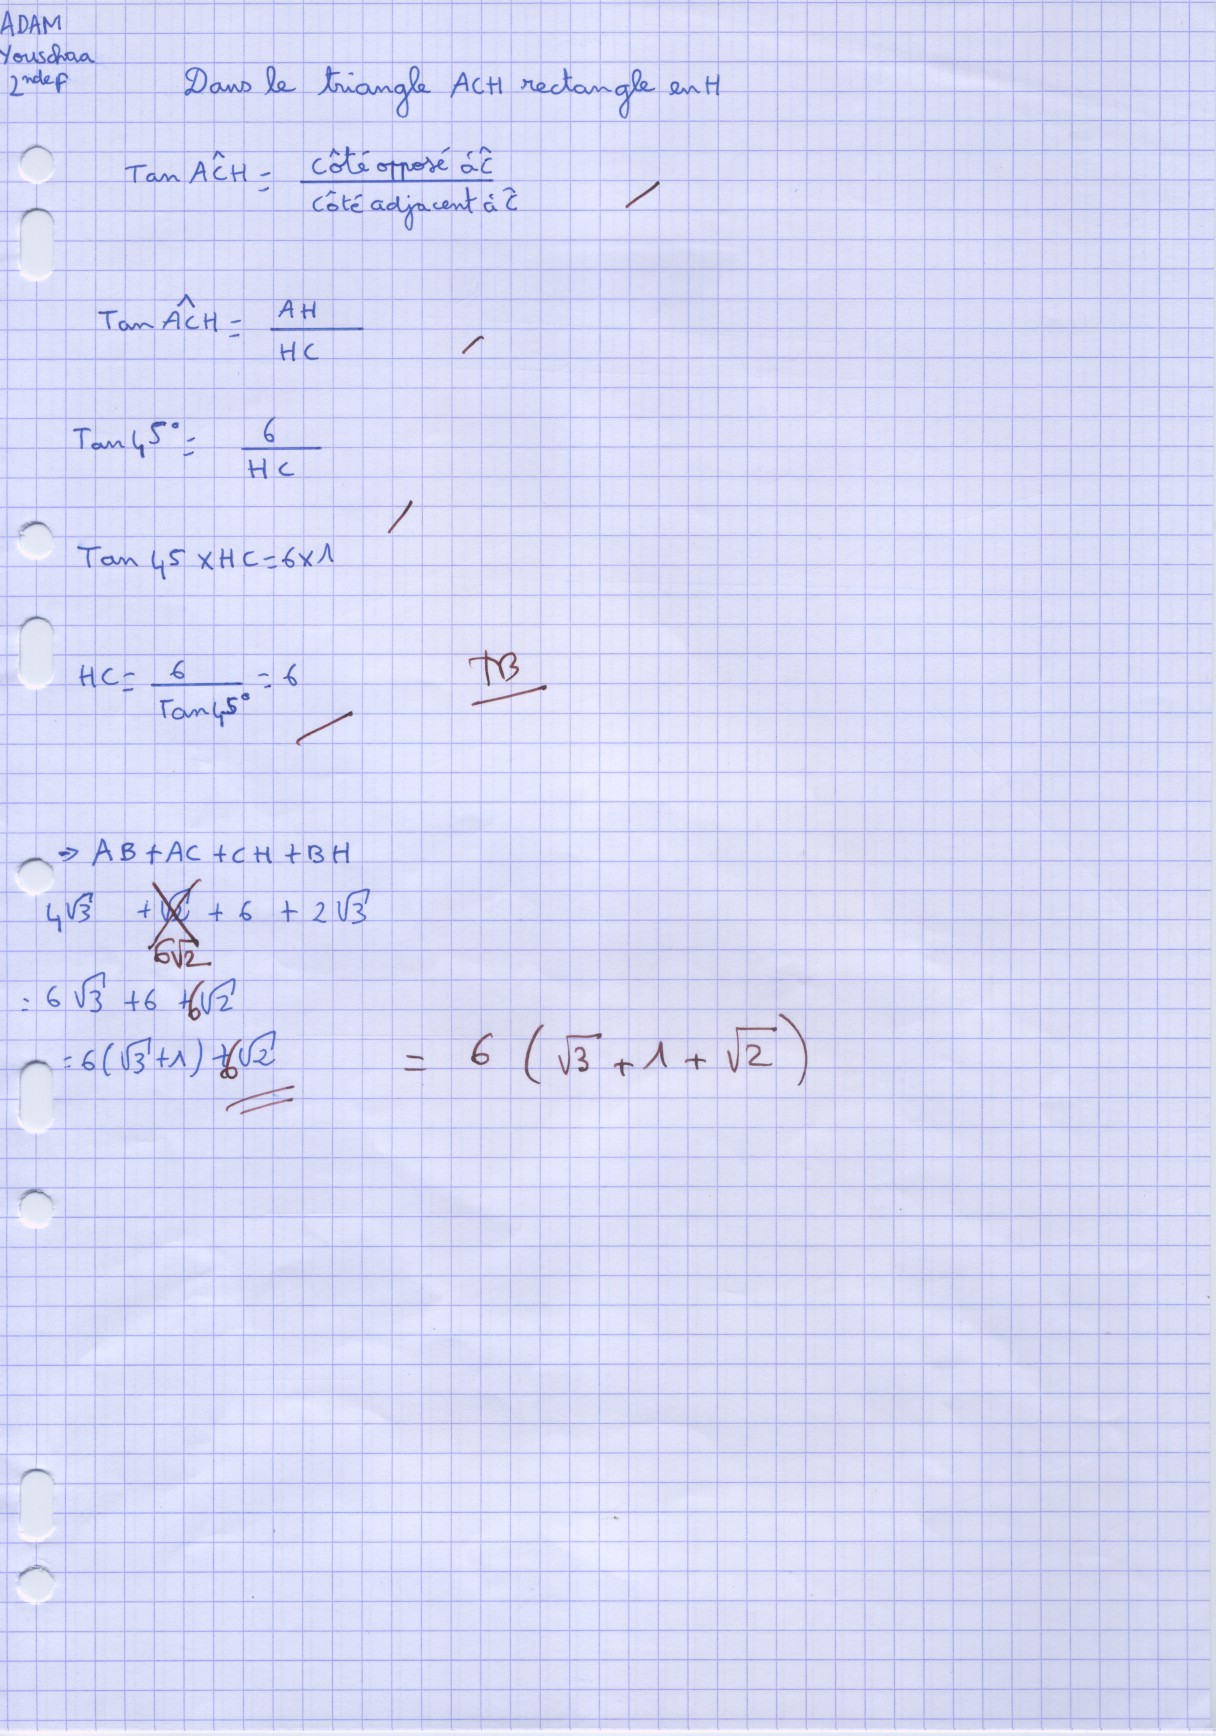 ADAM
Youschaa
2nde F
Dans le triangle ACH rectangle en H
Tan AĈH = Côté opposé à Ĉ / Côté adjacent à Ĉ
Tan AĈH = AH / HC
Tan 45° = 6 / HC
Tan 45 × HC = 6 × 1
HC = 6 / Tan 45° = 6
TB
→ AB + AC + CH + BH
4√3 + + 6 + 2√3
6√2
= 6√3 + 6 + 6√2
= 6(√3 + 1) + 6√2 = 6 (√3 + 1 + √2)